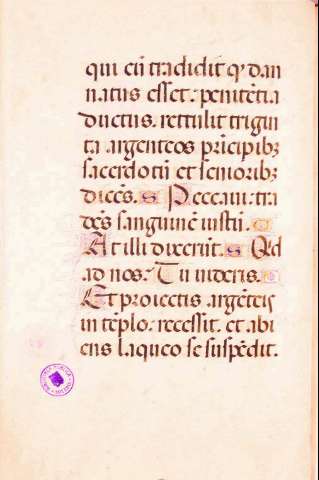 qui eũ tradidit q̃ dam
natus esset. penitẽtia
ductus. rettulit trigin
ta argenteos prĩcipibꝫ
sacerdotũ et senioribꝫ
dicẽs. Peccaui. tra
dẽs sanguinẽ iustũ.
At illi dixerũt. Qd̃
ad nos. Tu uideris.
Et proiectis argẽteis
in tẽplo. recessit. et abi
ens laqueo se suspẽdit.